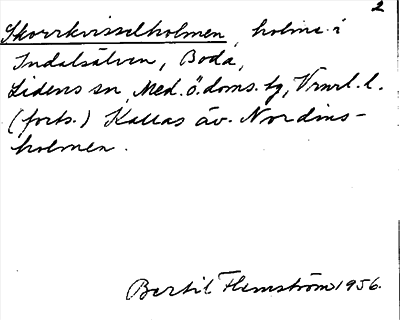 2
Skorrkvisselholmen, holme i
Indalsälven, Boda,
Lidens sn, Med. ö. doms. tg, Vrnrl. l.
(forts.) Kallas äv. Nordins-
holmen.
Bertil Flemström 1956.